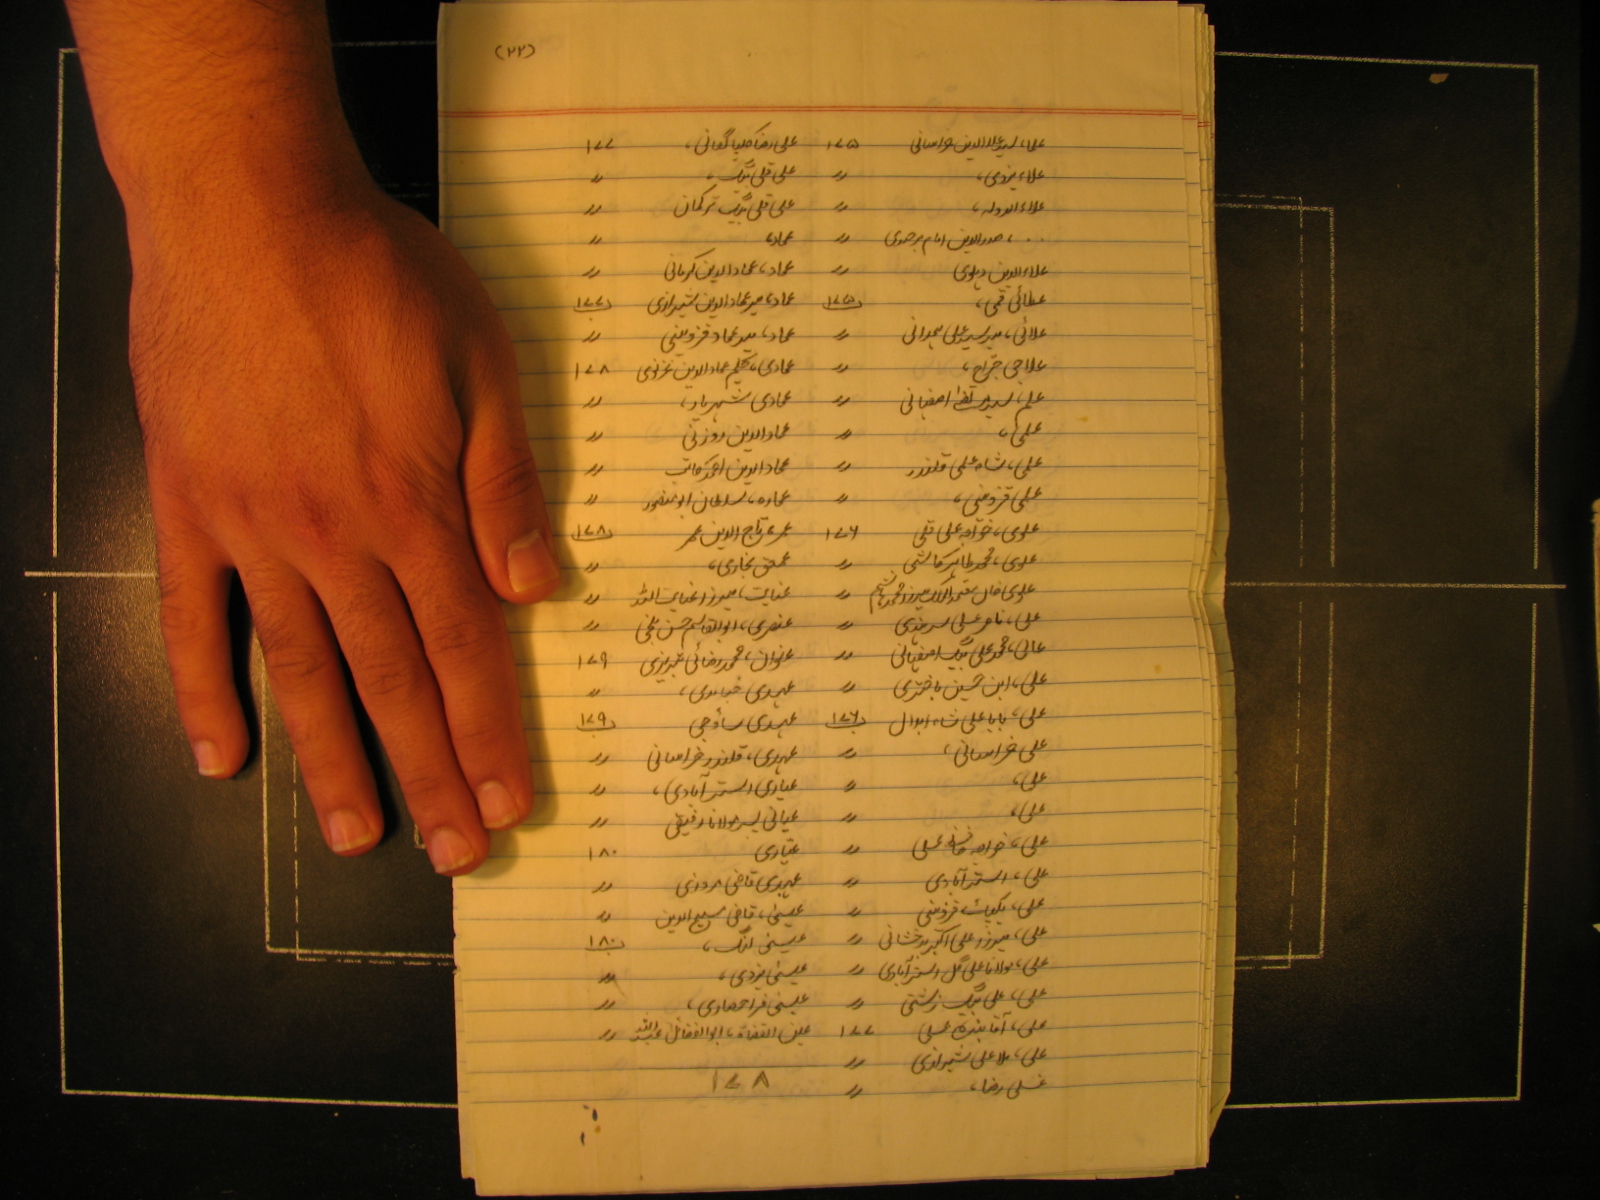 (۲۲)
علاء، سید علاءالدین خراسانی ۱۷۵ علی رضا گلپایگانی، ۱۷۷
علاء یزدی، 〃 علی قلی بیگ، 〃
علاءالدوله، 〃 علی قلی بیگ ترکمان 〃
۰۰، صدرالدین امام 〃 عماد، 〃
علاءالدین دهلوی 〃 عماد، عمادالدین کرمانی 〃
عطائی قمی، ۱۷۵ب عماد، میر عمادالدین شیرازی ۱۷۷ب
علائی، میر سید علی همدانی 〃 عماد، میر عماد قزوینی 〃
علاجی جراح، 〃 عمادی، حکیم عمادالدین غزنوی ۱۷۸
علم، اصفهانی 〃 عمادی شهریار، 〃
علمی، 〃 عمادالدین زوزنی 〃
علمی، شاه علمی قلندر 〃 عمادالدین احمد کاتب 〃
علمی قزوینی، 〃 عماره، سلطان ابو منصور 〃
علوی، خواجه علی قلی ۱۷۶ عمر، تاج الدین عمر ۱۷۸ب
علوی، محمد طاهر کاشی 〃 عمعق بخاری، 〃
علوی خان میرزا محمد هاشم 〃 عنایت، میرزا عنایت الله 〃
علی، ناصر علی سرهندی 〃 عنصری، ابوالقاسم حسن بلخی 〃
عالی، محمد علی بیگ اصفهانی 〃 عنوان، محمد رضائی تبریزی ۱۷۹
علی، ابن حسن باخرزی 〃 عهدی 〃
علی، بابا علی شاه ابدال ۱۷۶ب عهدی ساوجی ۱۷۹ب
علی خراسانی، 〃 عهدی، قلندر خراسانی 〃
علی، 〃 عیاری استرآبادی، 〃
علی، 〃 عیانی پسر مولانا رفیقی 〃
علی، خواجه علی 〃 عیاری ۱۸۰
علی، استرآبادی 〃 عهدی قاضی 〃
علی، قزوینی 〃 عیسی، قاضی مسیح الدین 〃
علی، میرزا علی اکبر بدخشانی 〃 عیسی لنگ، ۱۸۰ب
علی، مولانا علی گل استرآبادی 〃 عیسی یزدی، 〃
علی، علی بیگ رشتی 〃 عیسی قراحصاری، 〃
علی، آقا علی ۱۷۷ عین القضاة، ابوالفضائل عبدالله 〃
علی، ملا علی شیرازی 〃
علی رضا، 〃
۱۷۸